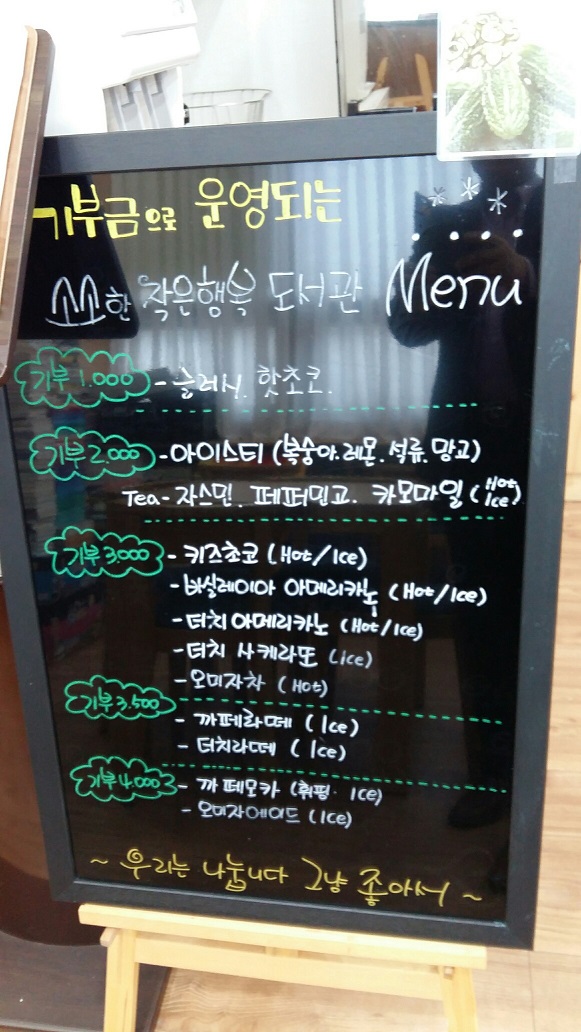 기부금으로 운영되는
소소한 작은행복 도서관 Menu
기부 1.000 - 슬러시. 핫초코.
기부 2.000 - 아이스티 (복숭아.레몬.석류.망고)
Tea - 자스민. 페퍼민고. 카모마일 (Hot Ice)
기부 3.000 - 키즈초코 (Hot/Ice)
- 바실레이아 아메리카노 (Hot/Ice)
- 더치 아메리카노 (Hot/Ice)
- 더치 사케라또 (ice)
- 오미자차 (Hot)
기부 3.500
- 까페라떼 (Ice)
- 더치라떼 (Ice)
기부 4.000 - 까페모카 (휘핑. Ice)
- 오미자에이드 (Ice)
~ 우리는 나눕니다 그냥 좋아서 ~